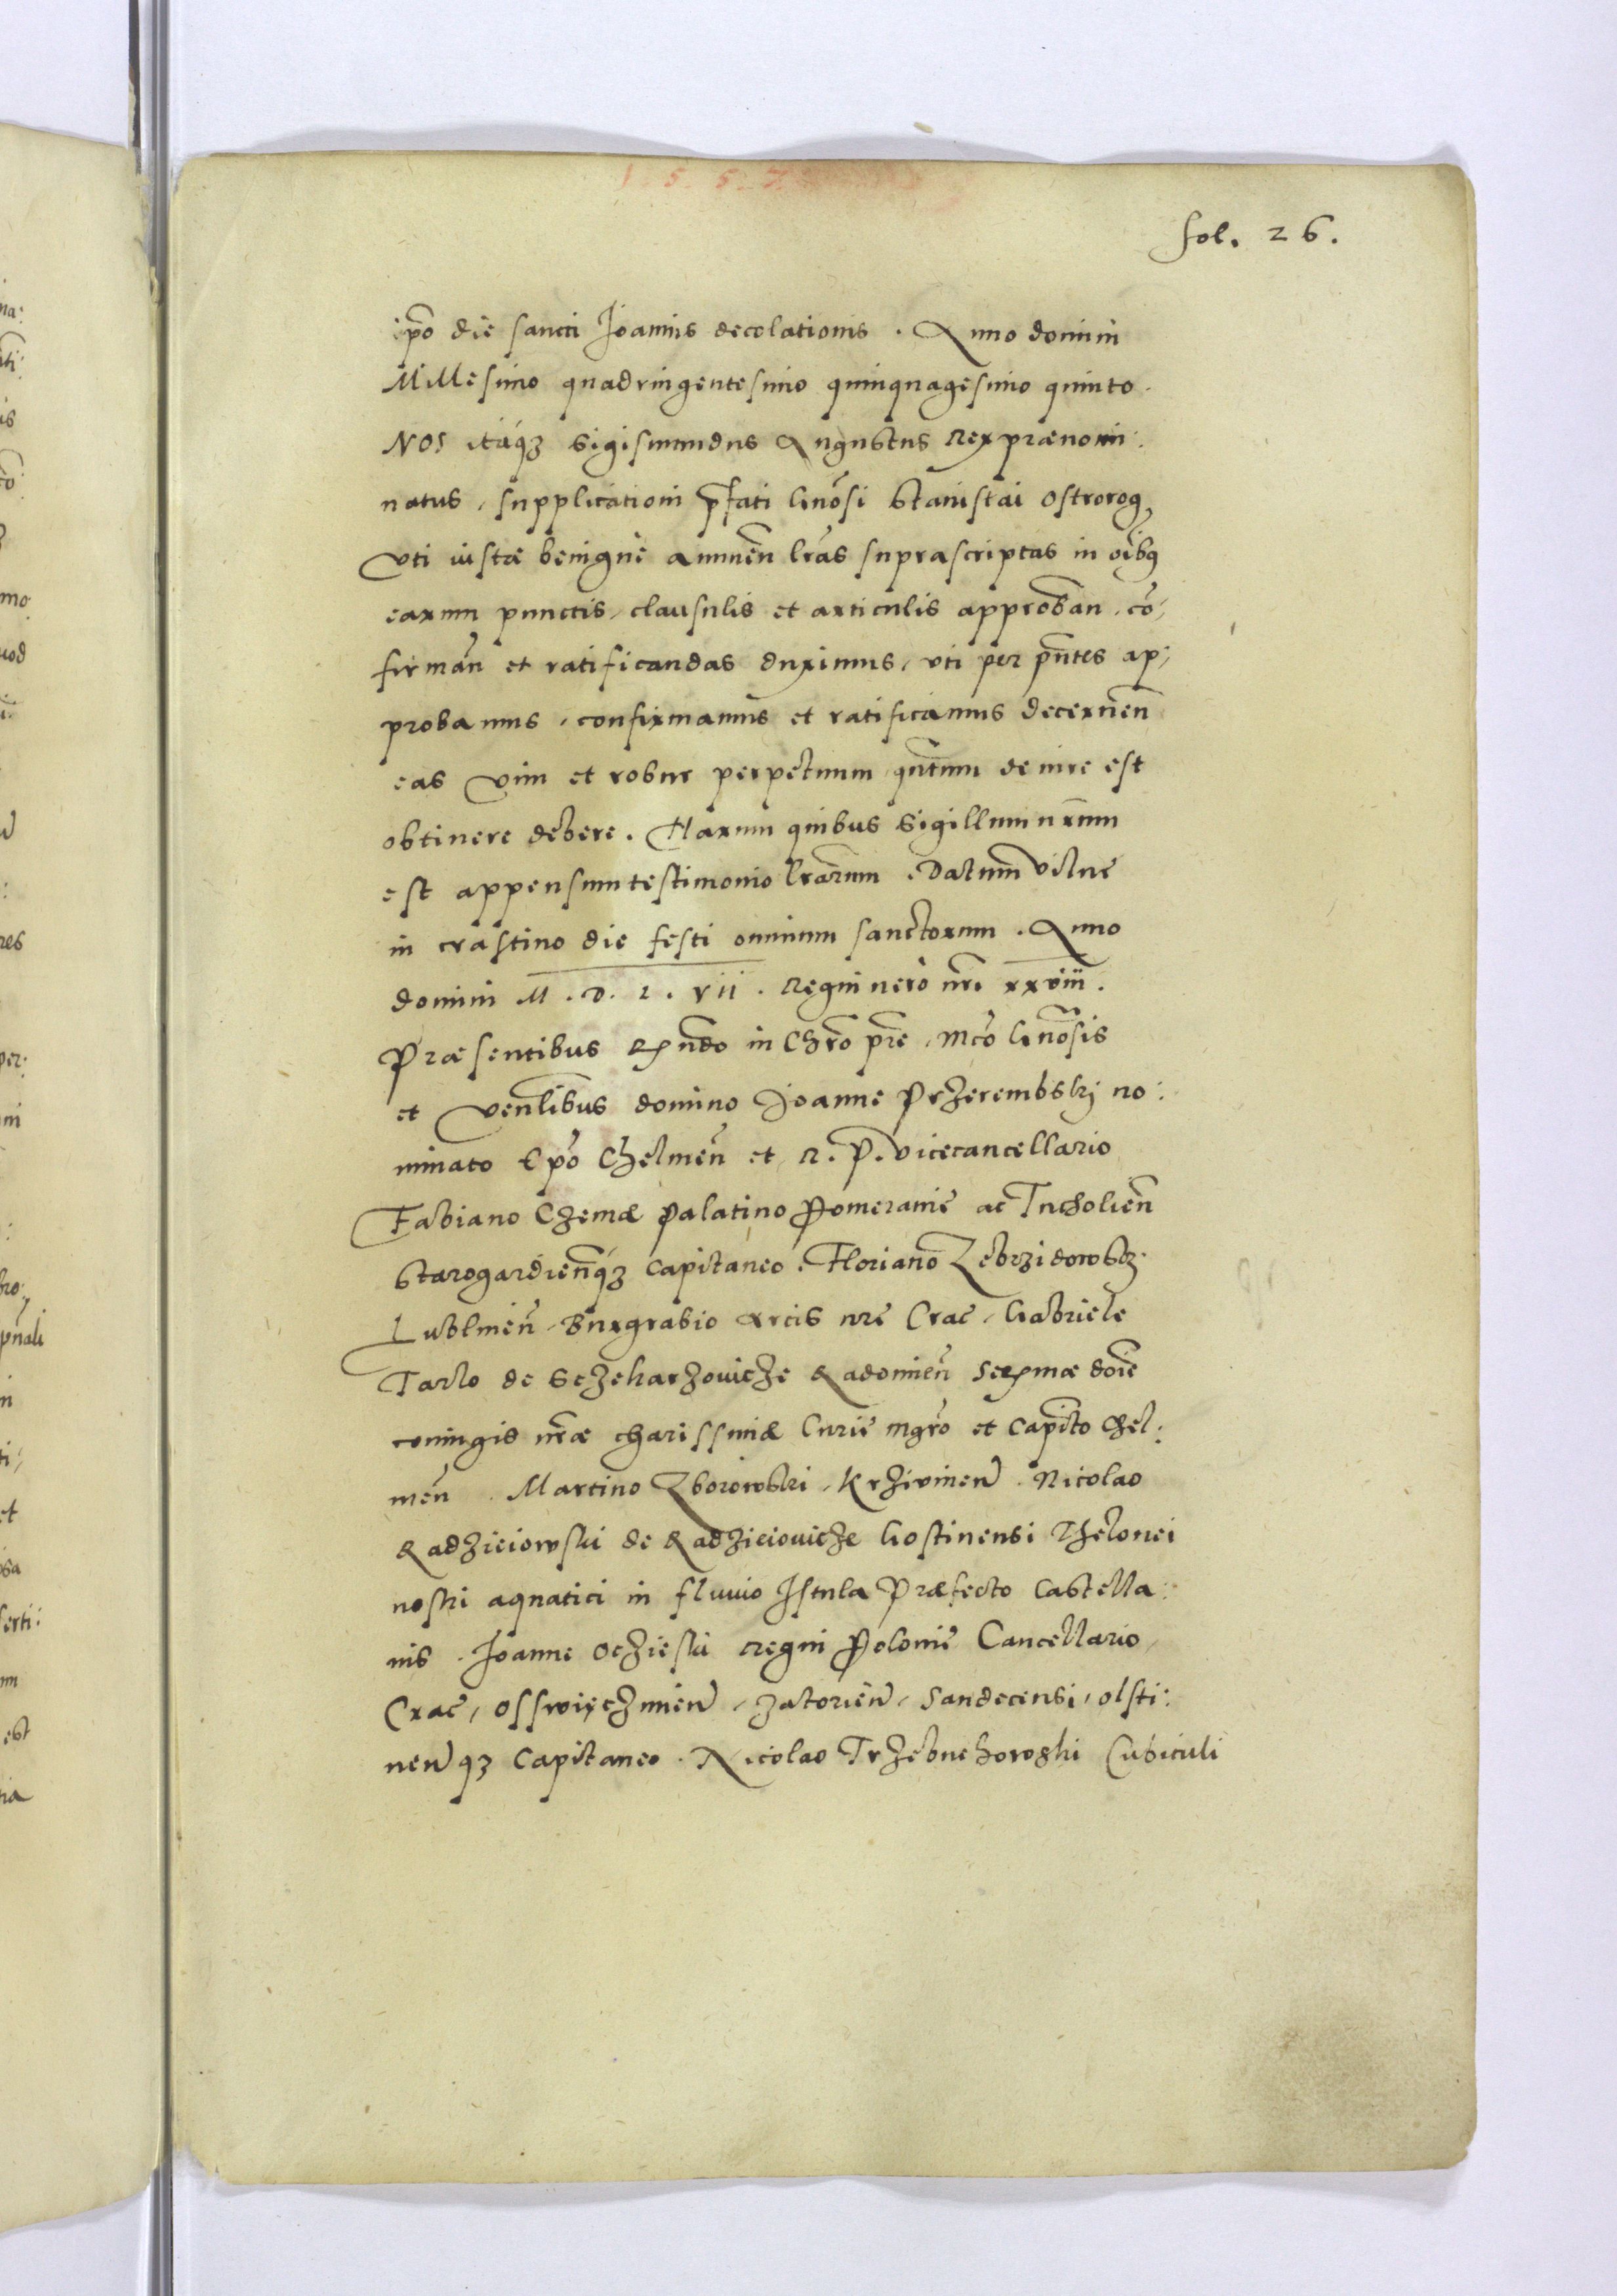 1.5.5.7
fol. 26.
ip̃o die sancti Joannis decolationis. Anno domini
Millesimo quadringentesimo quinquagesimo quinto.
NOS itaq̃ꝫ Sigismundus Augustus Rex prænomi:
natus, supplicationi p̃fati Gn̄osi Stanislai Ostrorog
vti iustæ benigne annuen̄ lr̃as suprascriptas in oĩbꝫ
earum punctis, clausulis et articulis approban̄, cõ:
firman̄ et ratificandas duximus, vti per pñtes ap:
probamus, confirmamus et ratificamus decernen̄
eas vim et robur perpetuum qñtum de iure est
obtinere debere. Harum quibus Sigillum nr̃um
est appensum testimonio lr̃arum. Datum Vilne
in crastino die festi omnium sanctorum. Anno
domini M. D. L. VII. Regni vero nr̃i xxviii.
Præsentibus Rṇdo in Chr̃o pr̃e, Mc̃o Gn̄osis
et Ven̄libus domino Joanne Przerembskj no:
minato Ep̃o Chelmen̄ et R. P. Vicecancellario
Fabiano Czemæ Palatino Pomeranie ac Tucholien̄
Starogardien̄q̃ꝫ Capitaneo. Floriano Zebrzidowskj
Lublinen̄, Burgrabio Arcis nr̃e Crac, Gabriele
Tarlo de Sczekarzovicze Radomien̄ Serṃæ doĩe
coniugis nr̃æ charissimæ Curie mgr̃o et Capit̃o Chel:
men̄. Martino Zborowski, Krzivinen̄. Nicolao
Radzieiowski de Radzieiovicze Gostinensi Thelonei
nostri aquatici in fluvio Istula Præfecto Castella:
nis. Joanne Oczieski Regni Polonie Cancellario,
Crac, Osswięczimen̄, Zatorien̄, Sandecensi, Olsti:
nen̄qꝫ Capitaneo. Nicolao Trzebuchowski Cubiculi